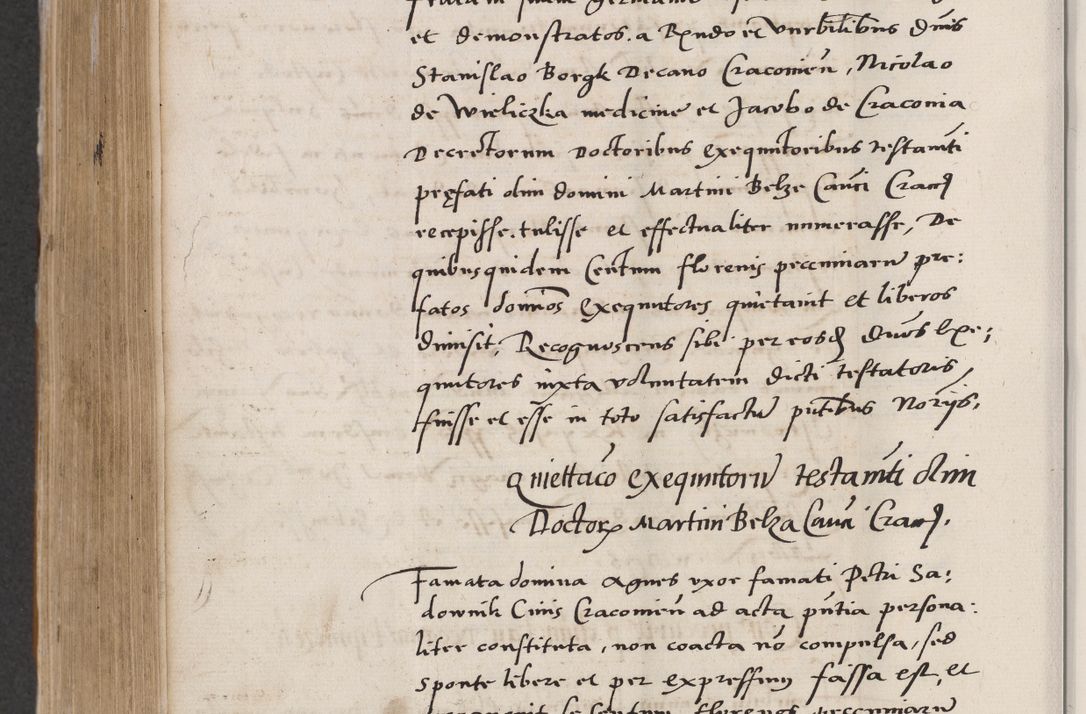 et demonstratos. a Rndo et vnrbilibus dnis
Stanislao Borgk Decano Cracouien, Nicolao
de Wieliczka medicine et Jacobo de Craconia
Decretorum Doctoribus exequutoribus testamti
pręfati olim domini Martini Belze Canci Crac
recepisse. tulisse et effectualiter numerasse, De
quibusquidem Centum florenis pecuniaru pre:
fatos dominos exequutores quietauit et liberos
dimisit, Recognoscens sibi per eosd dnos Exe:
quutores iuxta voluntatem dicti testatoris
fuisse et esse in toto satisfactu pntibus Norijs.
Quiettaco exequutoru testamti olim
Doctor Martini Belza Canci Crac.
Famata domina Agnes vxor famati Petri Sa:
downik Ciuis Cracouien ad acta pntia persona:
liter constituta, non coacta no compulsa, sed
sponte libere et per expressum fassa est, et
se Centum florenos pecuniaru